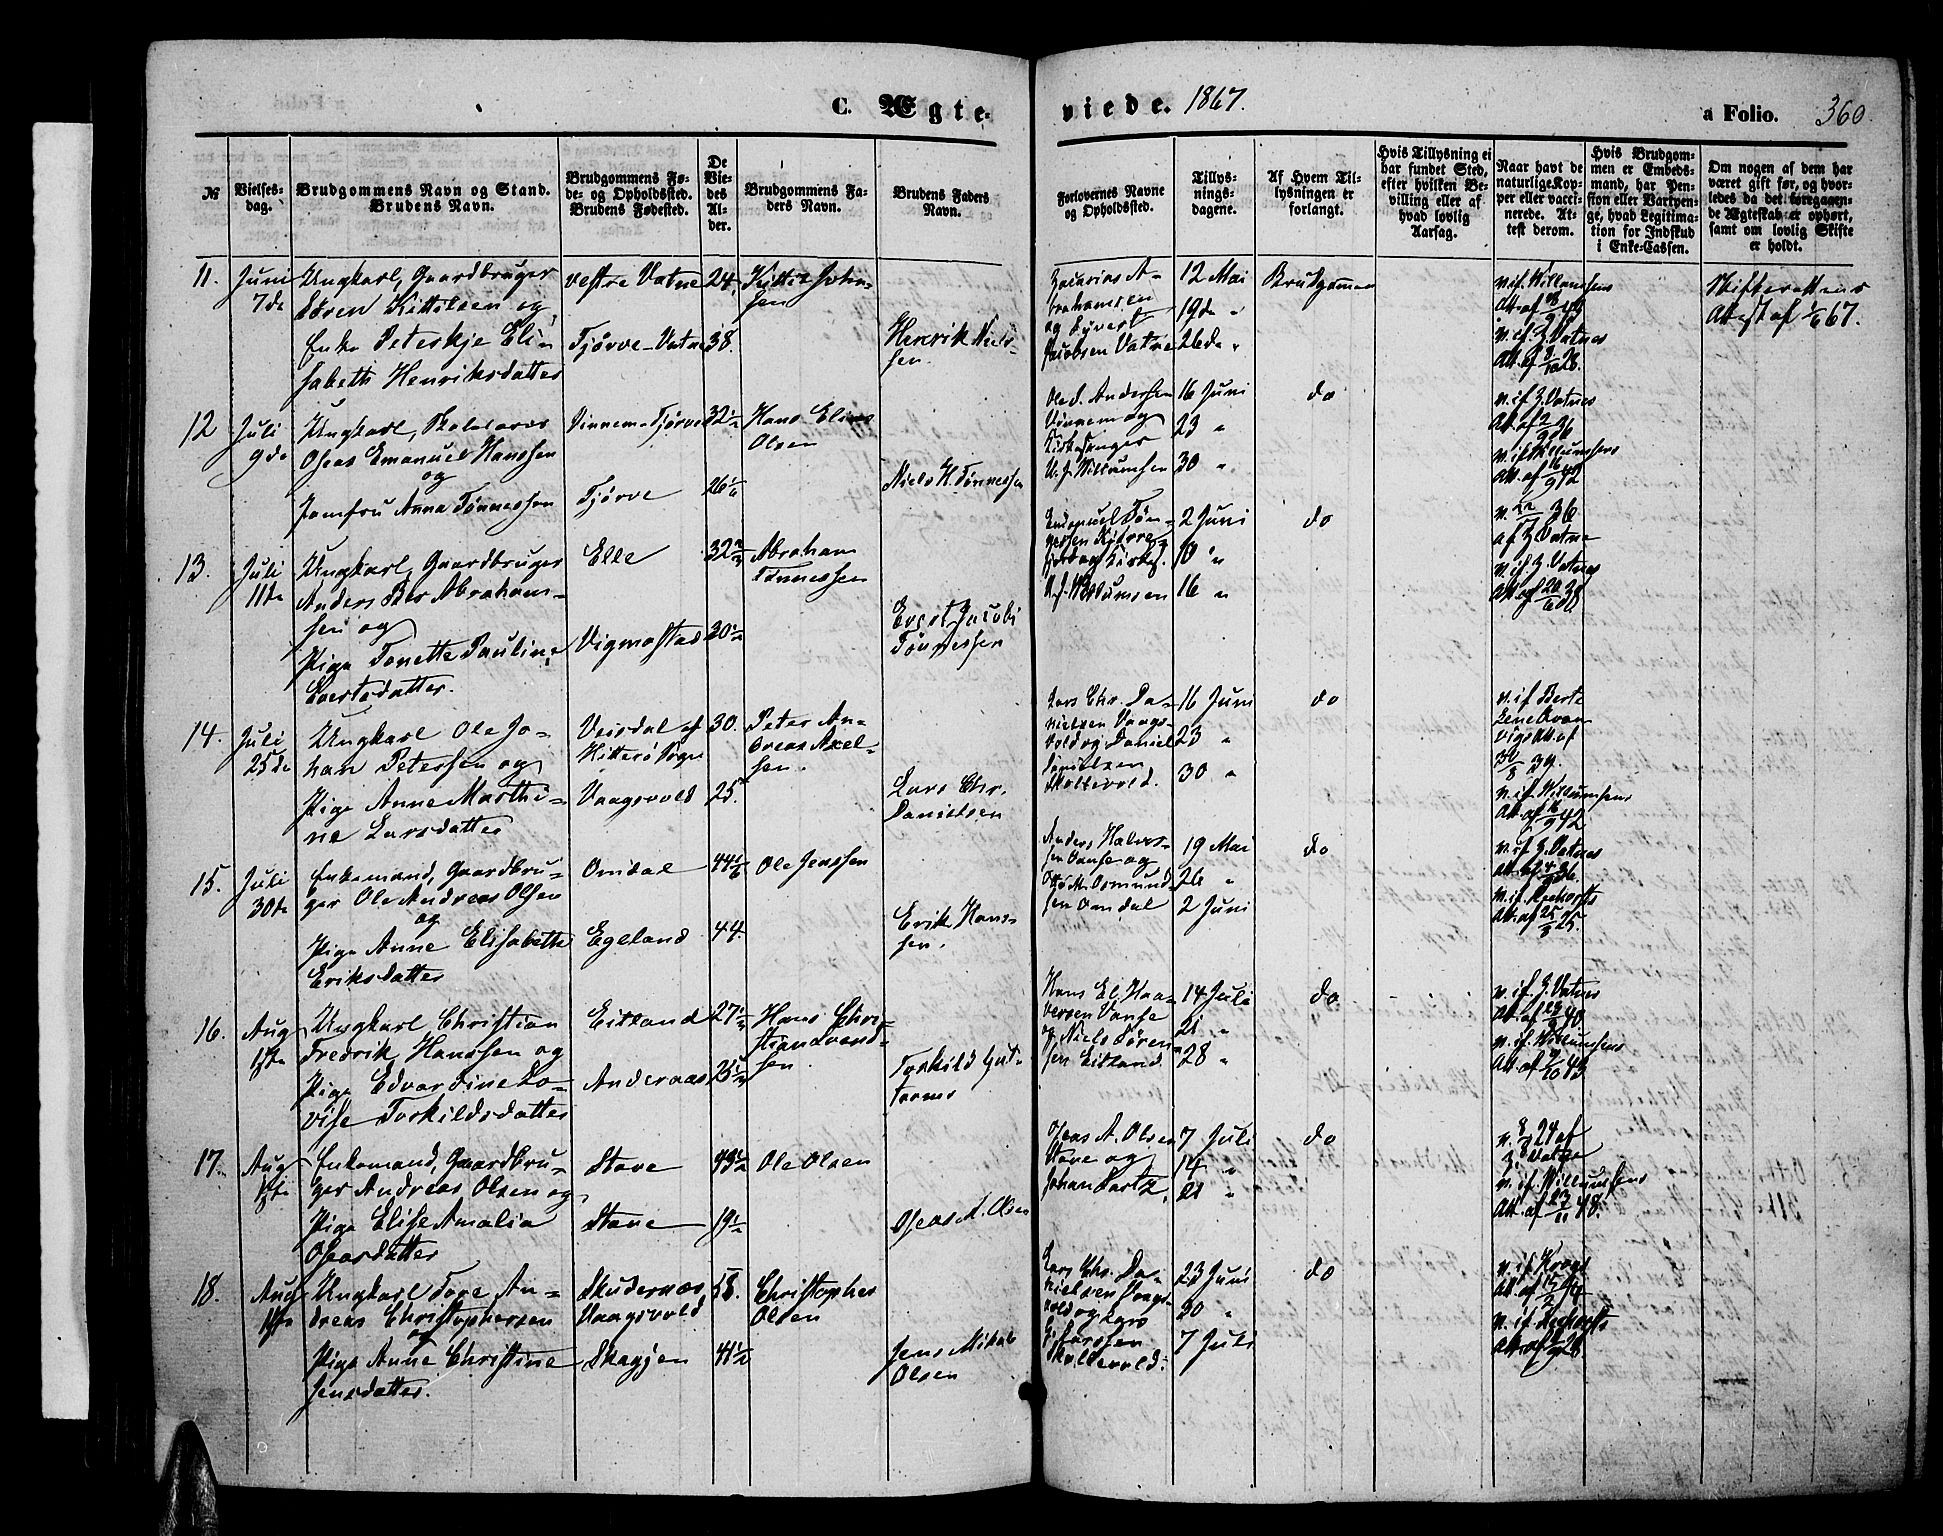 C. Ægte-
viede. 1867.
a Folio. 360.
№
Vielses-
dag.
Brudgommens Navn og Stand.
Brudens Navn.
Brudgommens Fø-
de- og Opholdssted.
Brudens Fødested.
De
Vie-
des
Al-
der.
Brudgommens Fa-
ders Navn.
Brudens Faders
Navn.
Forlovernes Navne
og Opholdssted.
Tillys-
nings-
dagene.
Af Hvem Til-
lysningen er
forlangt.
Hvis Tillysning ei
har fundet Sted,
efter hvilken Be-
villing eller af
hvad lovlig
Aarsag.
Naar havt de
naturlige Kop-
per eller vacci-
nerede. At-
test derom.
Hvis Brudgom-
men er Embeds-
mand, har Pen-
sion eller Vartpen-
ge, hvad Legitima-
tion for Indskud
i Enke-Cassen.
Om nogen af dem har
været gift før, og hvor-
ledes da det foregaaen-
de Ægteskab er ophørt,
samt om lovlig Skifte
er holdt.
11. Juni
7de
Ungkarl, Gaardbruger
Søren Kittilsen og
Enke Peterskje Eli-
sabeth Henriksdatter
vestre Vatne 24.
Tjørve-Vatne 38.
Kittil John-
sen
Henrik Niels-
sen.
Zacharias A-
brahamsen
og Syvert
Jacobsen Vatne
12 Mai
19de "
26de "
Brudgommen
v. if. Willumsens
Att. af
v. if. Z. Vatnes
Att. af
Skifterettens
Attest af 1/6 67.
12 Juli
9de
Ungkarl,
Oseas Emanuel Hanssen
og
Jomfru Anna Tønnessen
Vinnem-Tjørve 32 1/2
Tjørve 26 1/6
Hans Elias
Olsen
Niels H. Tønnessen
Ole S. Andersen
Vinnem og
Kirkesanger
W. J. Willumsen
16 Juni
23 "
30 "
do
v. if. Z. Vatnes
Att. af 36
v. if. Willumsens
Att. af 42
13. Juli
11te
Ungkarl, Gaardbruger
Anders Ber Abraham-
sen og
Pige Tonette Pauline
Evertsdatter.
Elle
Vigmostad 30 1/2
Abraham
Tønnessen
Evert Jacobs
Tønnessen
2 Juni
10 "
16 "
do
v. 36
af Z. Vatne
v. if. Z. Vatnes
Att. af
14. Juli
25de
Ungkarl Ole Jo-
han Petersen og
Pige Anne Marthi-
ne Larsdatter
Veisdal af
Hitterø Sogn 30.
Vaagsvold 25.
Peter An-
dreas Axel-
sen.
Lars Chr.
Danielsen
Lars Chr. Da-
nielsen Vaags-
vold og Daniel
Danielsen
Skollevold.
16 Juni
23 "
30 "
do
v. if. Berte
Lene Kvan-
vigs Att. af
39.
v. if. Willumsens
Att. af 42
15. Juli
30te
Enkemand, Gaardbru-
ger Ole Andreas Olsen
og
Pige Anne Elisabeth
Eriksdatter
Omdal 44 1/6
Egeland 44.
Ole Jenssen
Erik Hans-
sen.
Anders Halvor-
sen Vanse og
Osmund-
sen Omdal
19 Mai
26 "
2 Juni
do
v. if. Z. Vatnes
Att. af 36.
v. if.
Att. af 25.
16. Aug
1ste
Ungkarl Christian
Fredrik Hanssen og
Pige Edvardine Lo-
vise Torkildsdatter
Eitland 27 1/2
Andernaas 25 1/2
Hans Chri-
stian
sen.
Torkild Gut-
torms
Hans El. Haa-
versen Vanse
og Niels Søren-
sen Eitland.
14 Juli
21 "
28 "
do
v. if. Z. Vatnes
Att. af 40.
v. if. Willumsens
Att. af 43
17. Aug
1ste
Enkemand, Gaardbru-
ger Andreas Olsen og
Pige Elise Amalia
Oseasdatter
Stave 43 1/2
Stave 19 1/2
Ole Olsen
Oseas A. Olsen
Oseas A. Olsen
Stave og
Johan
7 Juli
14 "
21 "
do
v. 24 af
Z. Vatne
v. if. Willumsens
Att. af 48.
18. Aug
1ste
Ungkarl Tore An-
dreas Christophersen
og
Pige Anne Christine
Jensdatter.
Skudernæs
Vaagsvold 58.
Skagjen 41 1/2
Christopher
Olsen
Jens Mikal
Olsen
Lars Chr. Da-
nielsen Vaags-
vold og Lars
Larssen
Skollevold.
23 Juni
30 "
7 Juli
do
v. if. Krogs
Att. af
v. if.
Att. af 28.